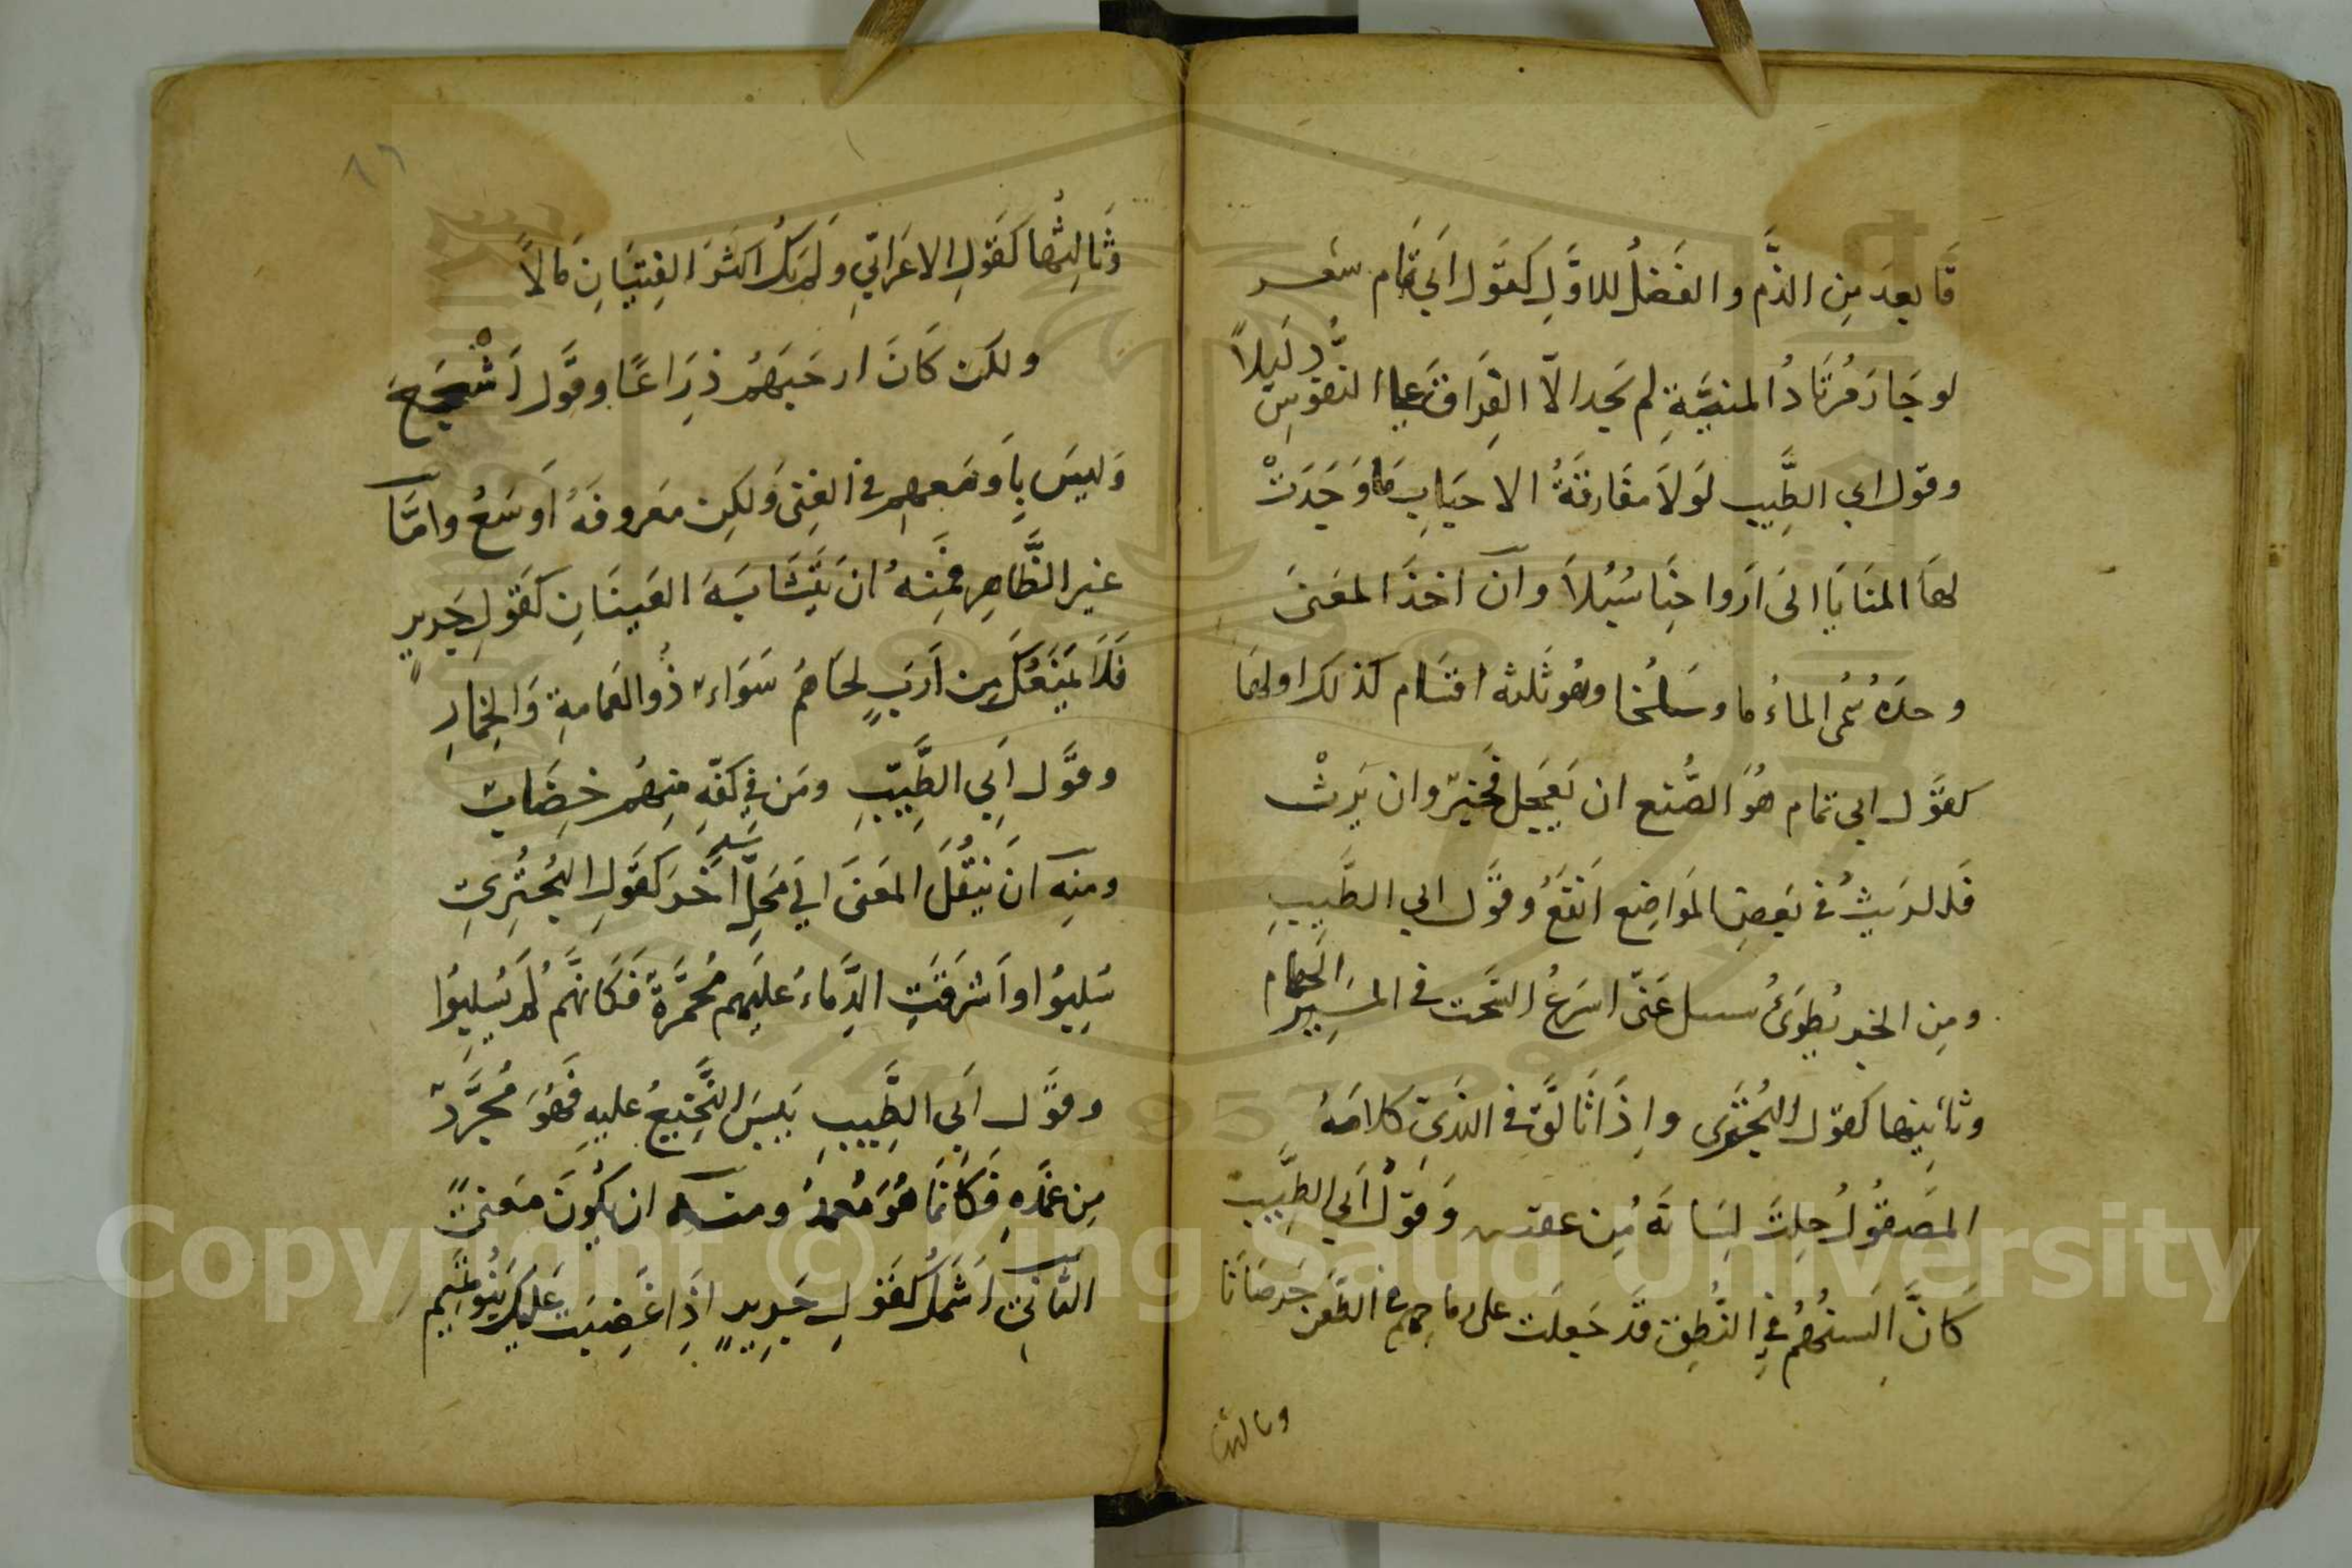 فابعد من الذم والفضل للاول كقول ابي تمام شعر
لو حار مرتاد المنية لم يجد الا الفراق على النفوس دليلا
وقول ابي الطيب لولا مفارقة الاحباب ما وجدت
لها المنايا الى ارواحنا سبلا وان اخذ المعنى
وحده سمى الماما وسلخا وهو ثلثة اقسام كذلك اولها
كقول ابي تمام هو الصنع ان يعجل فخير وان يرث
فللريث في بعض المواضع انفع وقول ابي الطيب
ومن الخير بطوئ سيبك عنى اسرع السحب في المسير الجهام
وثانيها كقول البحترى واذا تالق في الندى كلامه
المصقول خلت لسانه من عضبه وقول ابي الطيب
كان السنهم في النطق قد جعلت على رماحهم في الطعن خرصانا
وثالثها
٨٦
وثالثها كقول الاعرابي ولم يك اكثر الفتيان مالا
ولكن كان ارحبهم ذراعا وقول اشجع
وليس باوسعهم في الغنى ولكن معروفه اوسع واما
غير الظاهر فمنه ان يتشابه المعنيان كقول جرير
فلا يمنعك من ارب لحاهم سواء ذو العمامة والخمار
وقول ابي الطيب ومن في كفه منهم خضاب
ومنه ان ينقل المعنى الى محل اخر كقول البحترى
سلبوا واشرقت الدماء عليهم محمرة فكانهم لم يسلبوا
وقول ابي الطيب يبس النجيع عليه فهو مجرد
من غمده فكانما هو مغمد ومنه ان يكون معنى
الثانى اشمل كقول جرير اذا غضبت عليك بنو تميم
Copyright © King Saud University
1957